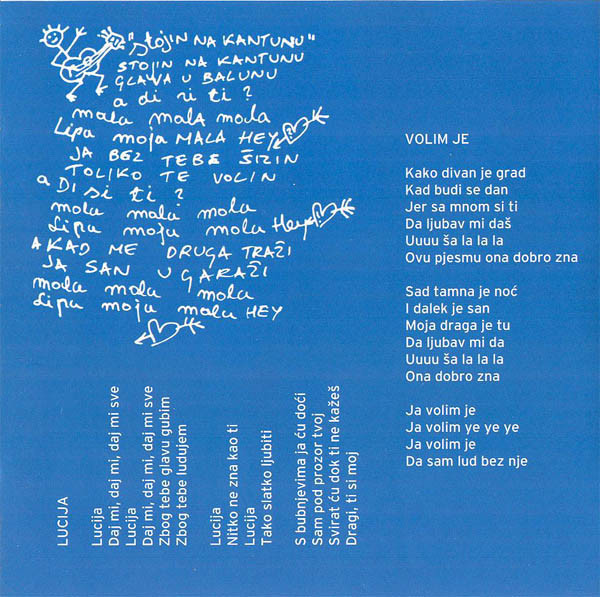 "STOJIN NA KANTUNU"
STOJIN NA KANTUNU
GLAVA U BALUNU
a di si ti?
mala mala mala
Lipa moja MALA HEY
JA BEZ TEBE ŠIZIN
TOLIKO TE VOLIN
a Di si ti?
mala mala mala
Lipa moja mala Hey
A KAD ME DRUGA TRAŽI
JA SAN U GARAŽI
mala mala mala
Lipa moja mala HEY
VOLIM JE
Kako divan je grad
Kad budi se dan
Jer sa mnom si ti
Da ljubav mi daš
Uuuu ša la la la
Ovu pjesmu ona dobro zna
Sad tamna je noć
I dalek je san
Moja draga je tu
Da ljubav mi da
Uuuu ša la la la
Ona dobro zna
Ja volim je
Ja volim ye ye ye
Ja volim je
Da sam lud bez nje
LUCIJA
Lucija
Daj mi, daj mi, daj mi sve
Lucija
Daj mi, daj mi, daj mi sve
Zbog tebe glavu gubim
Zbog tebe ludujem
Lucija
Nitko ne zna kao ti
Lucija
Tako slatko ljubiti
S bubnjevima ja ću doći
Sam pod prozor tvoj
Svirat ću dok ti ne kažeš
Dragi, ti si moj